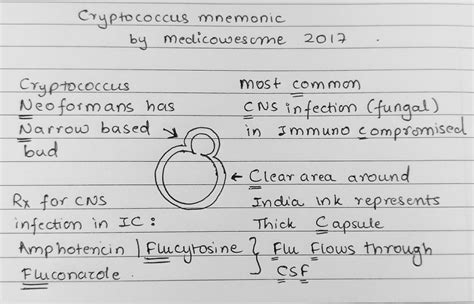 Cryptococcus mnemonic
by medicowesome 2017
Cryptococcus
Neoformans has
Narrow based
bud
most common
CNS infection (fungal)
in Immuno compromised
← Clear area around
India ink represents
Thick Capsule
Rx for CNS
infection in IC:
Amphotericin / Flucytosine
Fluconazole.
} Flu Flows through
CSF